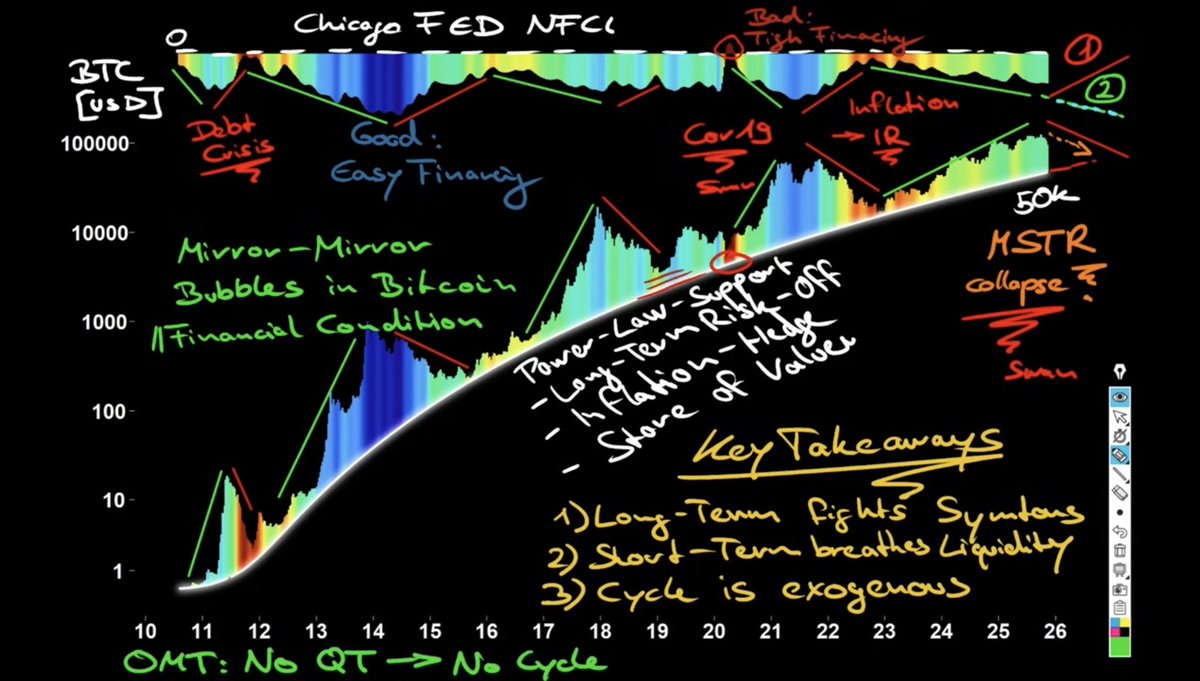 Chicago FED NFCI
0
BTC
[USD]
Bad:
Tigh Financing
1
2
Debt
Crisis
Good:
Easy Financing
Cov19
Swan
Inflation
→ IR
100000
10000
1000
100
10
1
Mirror-Mirror
Bubbles in Bitcoin
//Financial Condition
50k
MSTR
collapse?
Swan
Power-Law-Support
- Long-Term Risk-Off
- Inflation-Hedge
- Store of Values
Key Takeaways
1) Long-Term fights Symtoms
2) Short-Term breathes Liquidity
3) Cycle is exogenous
10 11 12 13 14 15 16 17 18 19 20 21 22 23 24 25 26
OMT: No QT → No Cycle